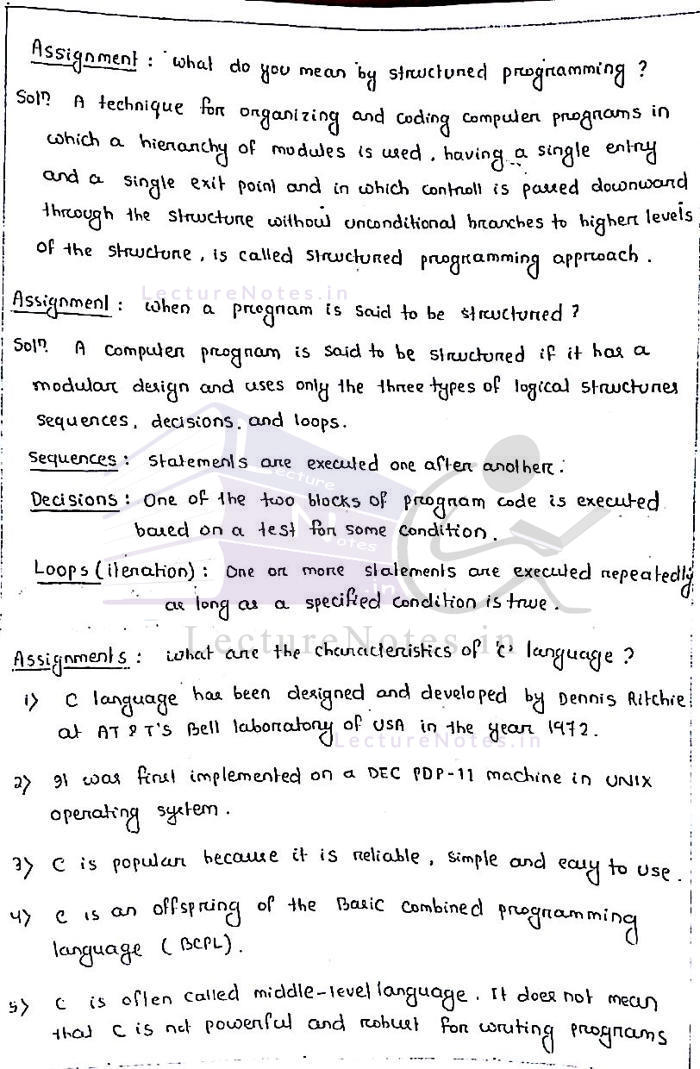 Assignment : What do you mean by structured programming ?
Solⁿ. A technique for organizing and coding computer programs in
which a hierarchy of modules is used, having a single entry
and a single exit point and in which controll is passed downward
through the structure without unconditional branches to higher levels
of the structure, is called structured programming approach.
LectureNotes.in
Assignment : When a program is said to be structured ?
Solⁿ. A computer program is said to be structured if it has a
modular design and uses only the three types of logical structures
sequences, decisions, and loops.
Sequences : Statements are executed one after another.
Lecture
Decisions : One of the two blocks of program code is executed
Notes
based on a test for some condition.
.in
Loops (iteration) : One or more statements are executed repeatedly
as long as a specified condition is true.
LectureNotes.in
Assignments : What are the characteristics of 'C' language ?
1) C language has been designed and developed by Dennis Ritchie
at AT & T's Bell laboratory of USA in the year 1972.
LectureNotes.in
2) It was first implemented on a DEC PDP-11 machine in UNIX
operating system.
3) C is popular because it is reliable, simple and easy to use.
4) C is an offspring of the Basic Combined programming
language (BCPL).
5) C is often called middle-level language. It does not mean
that C is not powerful and robust for writing programs